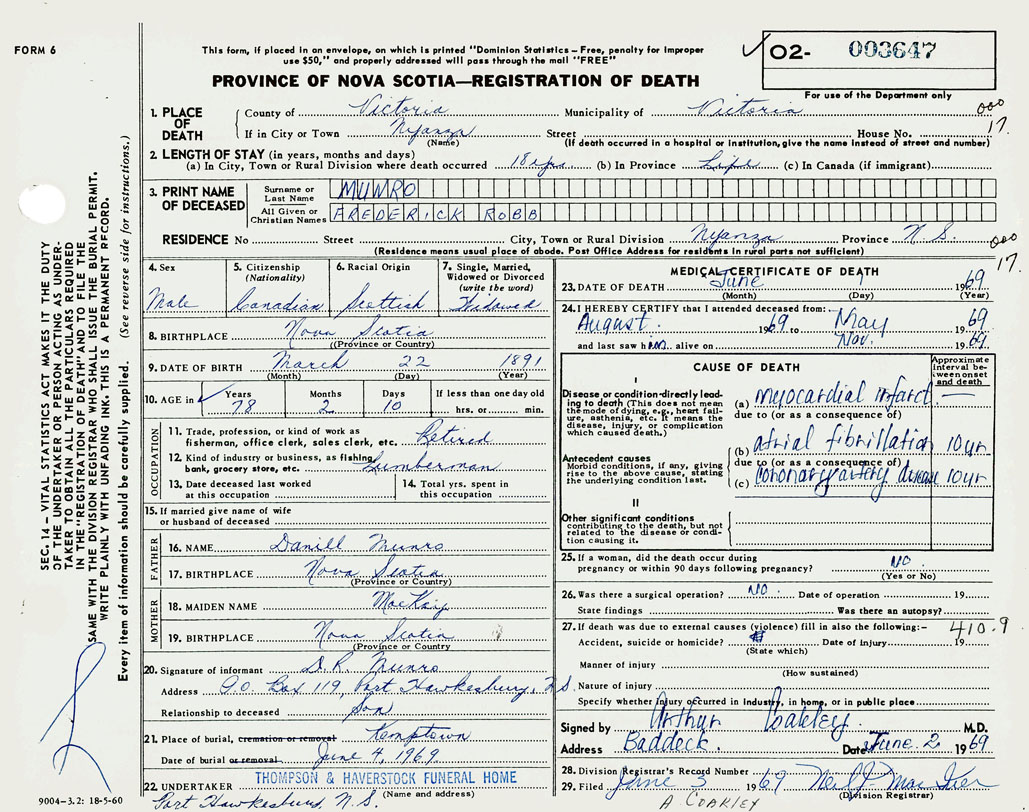 FORM 6
This form, if placed in an envelope, on which is printed "Dominion Statistics – Free, penalty for improper
use $50," and properly addressed will pass through the mail "FREE"
O2- 003647
PROVINCE OF NOVA SCOTIA—REGISTRATION OF DEATH
For use of the Department only
1. PLACE OF DEATH
County of Victoria Municipality of Victoria 000
If in City or Town Nyanza Street House No. 17.
(Name) (If death occurred in a hospital or institution, give the name instead of street and number)
2. LENGTH OF STAY (in years, months and days)
(a) In City, Town or Rural Division where death occurred 18 yrs (b) In Province Life (c) In Canada (if immigrant)
3. PRINT NAME OF DECEASED
Surname or Last Name MUNRO
All Given or Christian Names FREDERICK ROBB
RESIDENCE No Street City, Town or Rural Division Nyanza Province N.S. 000
(Residence means usual place of abode. Post Office Address for residents in rural parts not sufficient) 17.
4. Sex Male
5. Citizenship (Nationality) Canadian
6. Racial Origin Scottish
7. Single, Married, Widowed or Divorced (write the word) Widowed
8. BIRTHPLACE Nova Scotia
(Province or Country)
9. DATE OF BIRTH March 22 1891
(Month) (Day) (Year)
10. AGE in Years Months Days If less than one day old
78 2 10 hrs. or min.
OCCUPATION
11. Trade, profession, or kind of work as
fisherman, office clerk, sales clerk, etc. Retired
12. Kind of industry or business, as fishing,
bank, grocery store, etc. Lumberman
13. Date deceased last worked
at this occupation
14. Total yrs. spent in
this occupation
15. If married give name of wife
or husband of deceased
FATHER
16. NAME Daniel Munro
17. BIRTHPLACE Nova Scotia
(Province or Country)
MOTHER
18. MAIDEN NAME MacKay
19. BIRTHPLACE Nova Scotia
(Province or Country)
20. Signature of informant D.R. Munro
Address P.O. Box 119, Port Hawkesbury, N.S.
Relationship to deceased Son
21. Place of burial, cremation or removal Kemptown
Date of burial or removal June 4, 1969
THOMPSON & HAVERSTOCK FUNERAL HOME
22. UNDERTAKER (Name and address)
Port Hawkesbury N.S.
9004—3.2: 18-5-60
MEDICAL CERTIFICATE OF DEATH
23. DATE OF DEATH June 1 1969
(Month) (Day) (Year)
24. I HEREBY CERTIFY that I attended deceased from:
August 1969 to May 1969
and last saw him alive on Nov. 1969
CAUSE OF DEATH
Approximate interval between onset and death
I
Disease or condition directly leading to death (This does not mean the mode of dying, e.g., heart failure, asthenia, etc. It means the disease, injury, or complication which caused death.)
(a) myocardial infarct. —
due to (or as a consequence of)
(b) atrial fibrillation 10 yr
Antecedent causes
Morbid conditions, if any, giving rise to the above cause, stating the underlying condition last.
due to (or as a consequence of)
(c) coronary artery disease 10 yr
II
Other significant conditions
contributing to the death, but not related to the disease or condition causing it.
25. If a woman, did the death occur during
pregnancy or within 90 days following pregnancy? NO
(Yes or No)
26. Was there a surgical operation? NO. Date of operation 19
State findings Was there an autopsy?
27. If death was due to external causes (violence) fill in also the following:— 410.9
Accident, suicide or homicide? Date of injury 19
(State which)
Manner of injury
(How sustained)
Nature of injury
Specify whether injury occurred in industry, in home, or in public place
Signed by Arthur Coakley M.D.
Address Baddeck. Date June 2 1969
28. Division Registrar's Record Number
29. Filed June 3 1969
(Division Registrar)
A COAKLEY
SEC. 14 – VITAL STATISTICS ACT MAKES IT THE DUTY
OF THE UNDERTAKER OR PERSON ACTING AS UNDER-
TAKER TO OBTAIN ALL THE PARTICULARS REQUIRED
IN THE "REGISTRATION OF DEATH" AND TO FILE THE
SAME WITH THE DIVISION REGISTRAR WHO SHALL ISSUE THE BURIAL PERMIT.
WRITE PLAINLY WITH UNFADING INK. THIS IS A PERMANENT RECORD.
Every item of information should be carefully supplied. (See reverse side for instructions.)